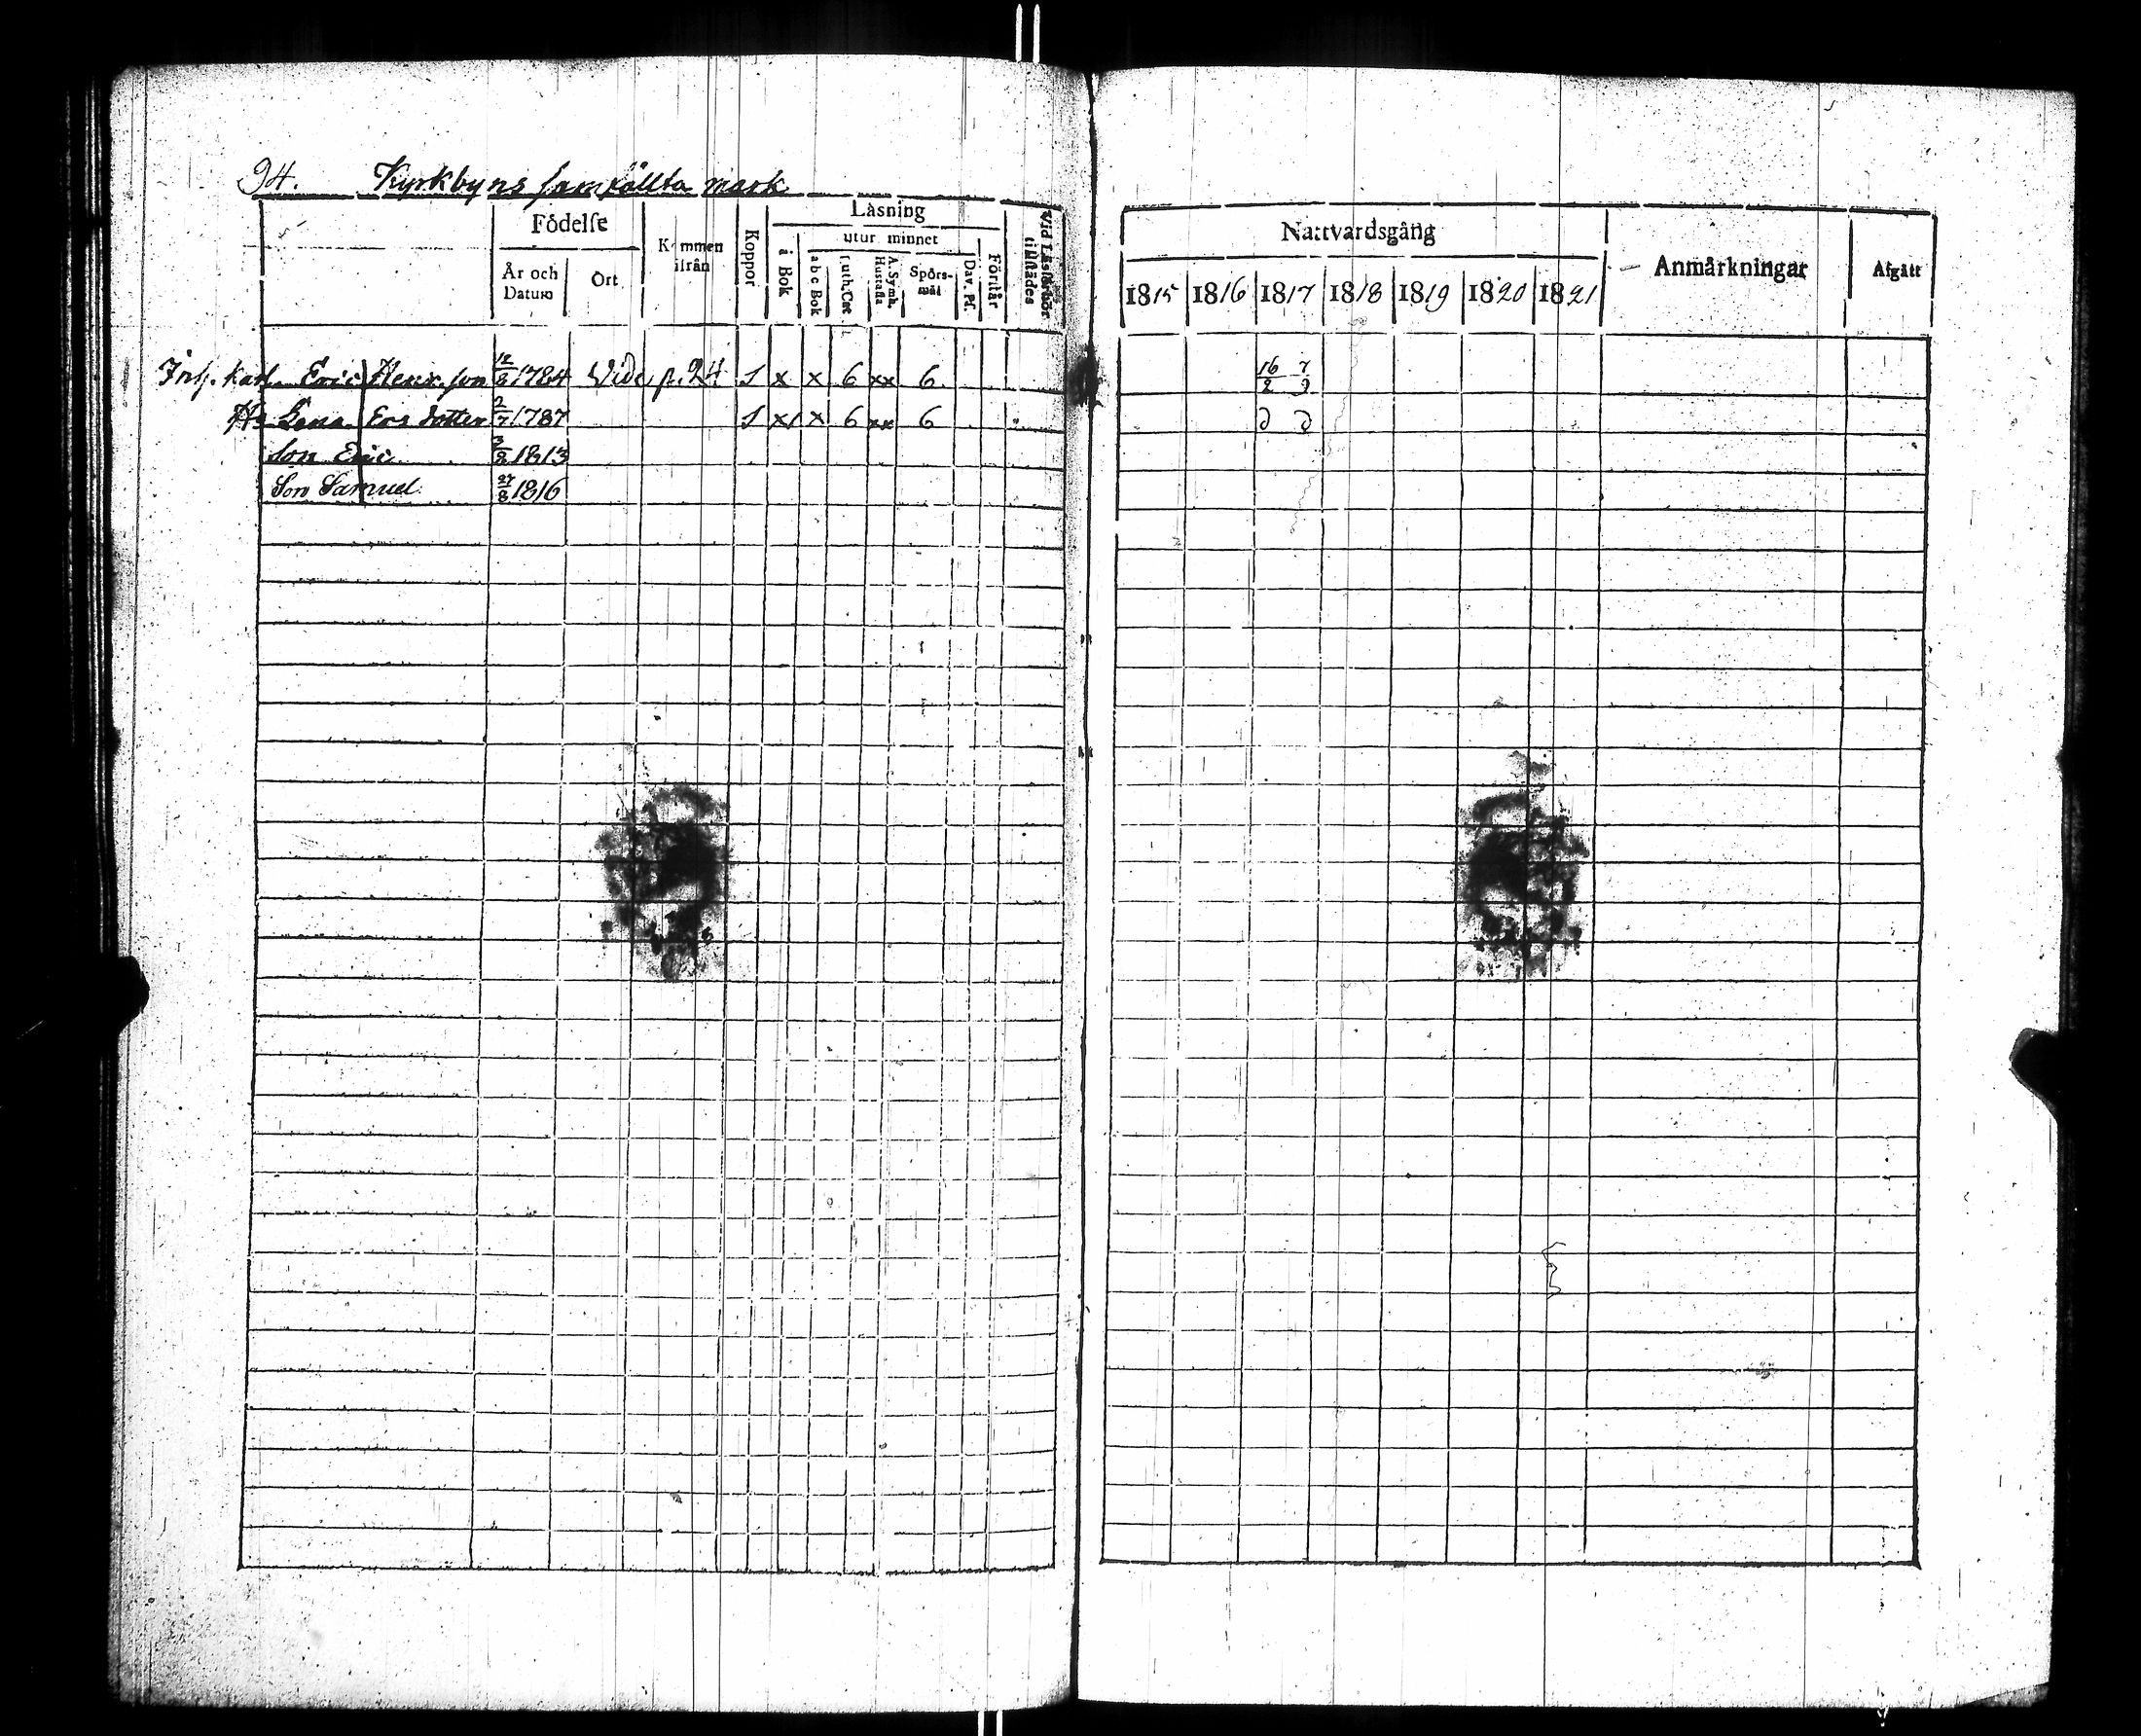 94. Kyrkbyns samfällta mark
Födelse Kommen ifrån Koppor Läsning Vid Läsförhör tillstädes
År och Datum Ort i Bok utur minnet Förstår
a b c Bok Luth. Cat. A. Symb. Hustafla Spörsmål Dav. Ps.
Inh. karl Eric Henr. son 12/8 1784 Vide p. 24 1 x x 6 xx 6
H. Lena Ers dotter 2/7 1787 1 x x 6 xx 6
Son Eric 3/8 1813
Son Samuel 27/8 1816
Nattvardsgång Anmärkningar Afgått
1815 1816 1817 1818 1819 1820 1821
16/2 7/9
d d